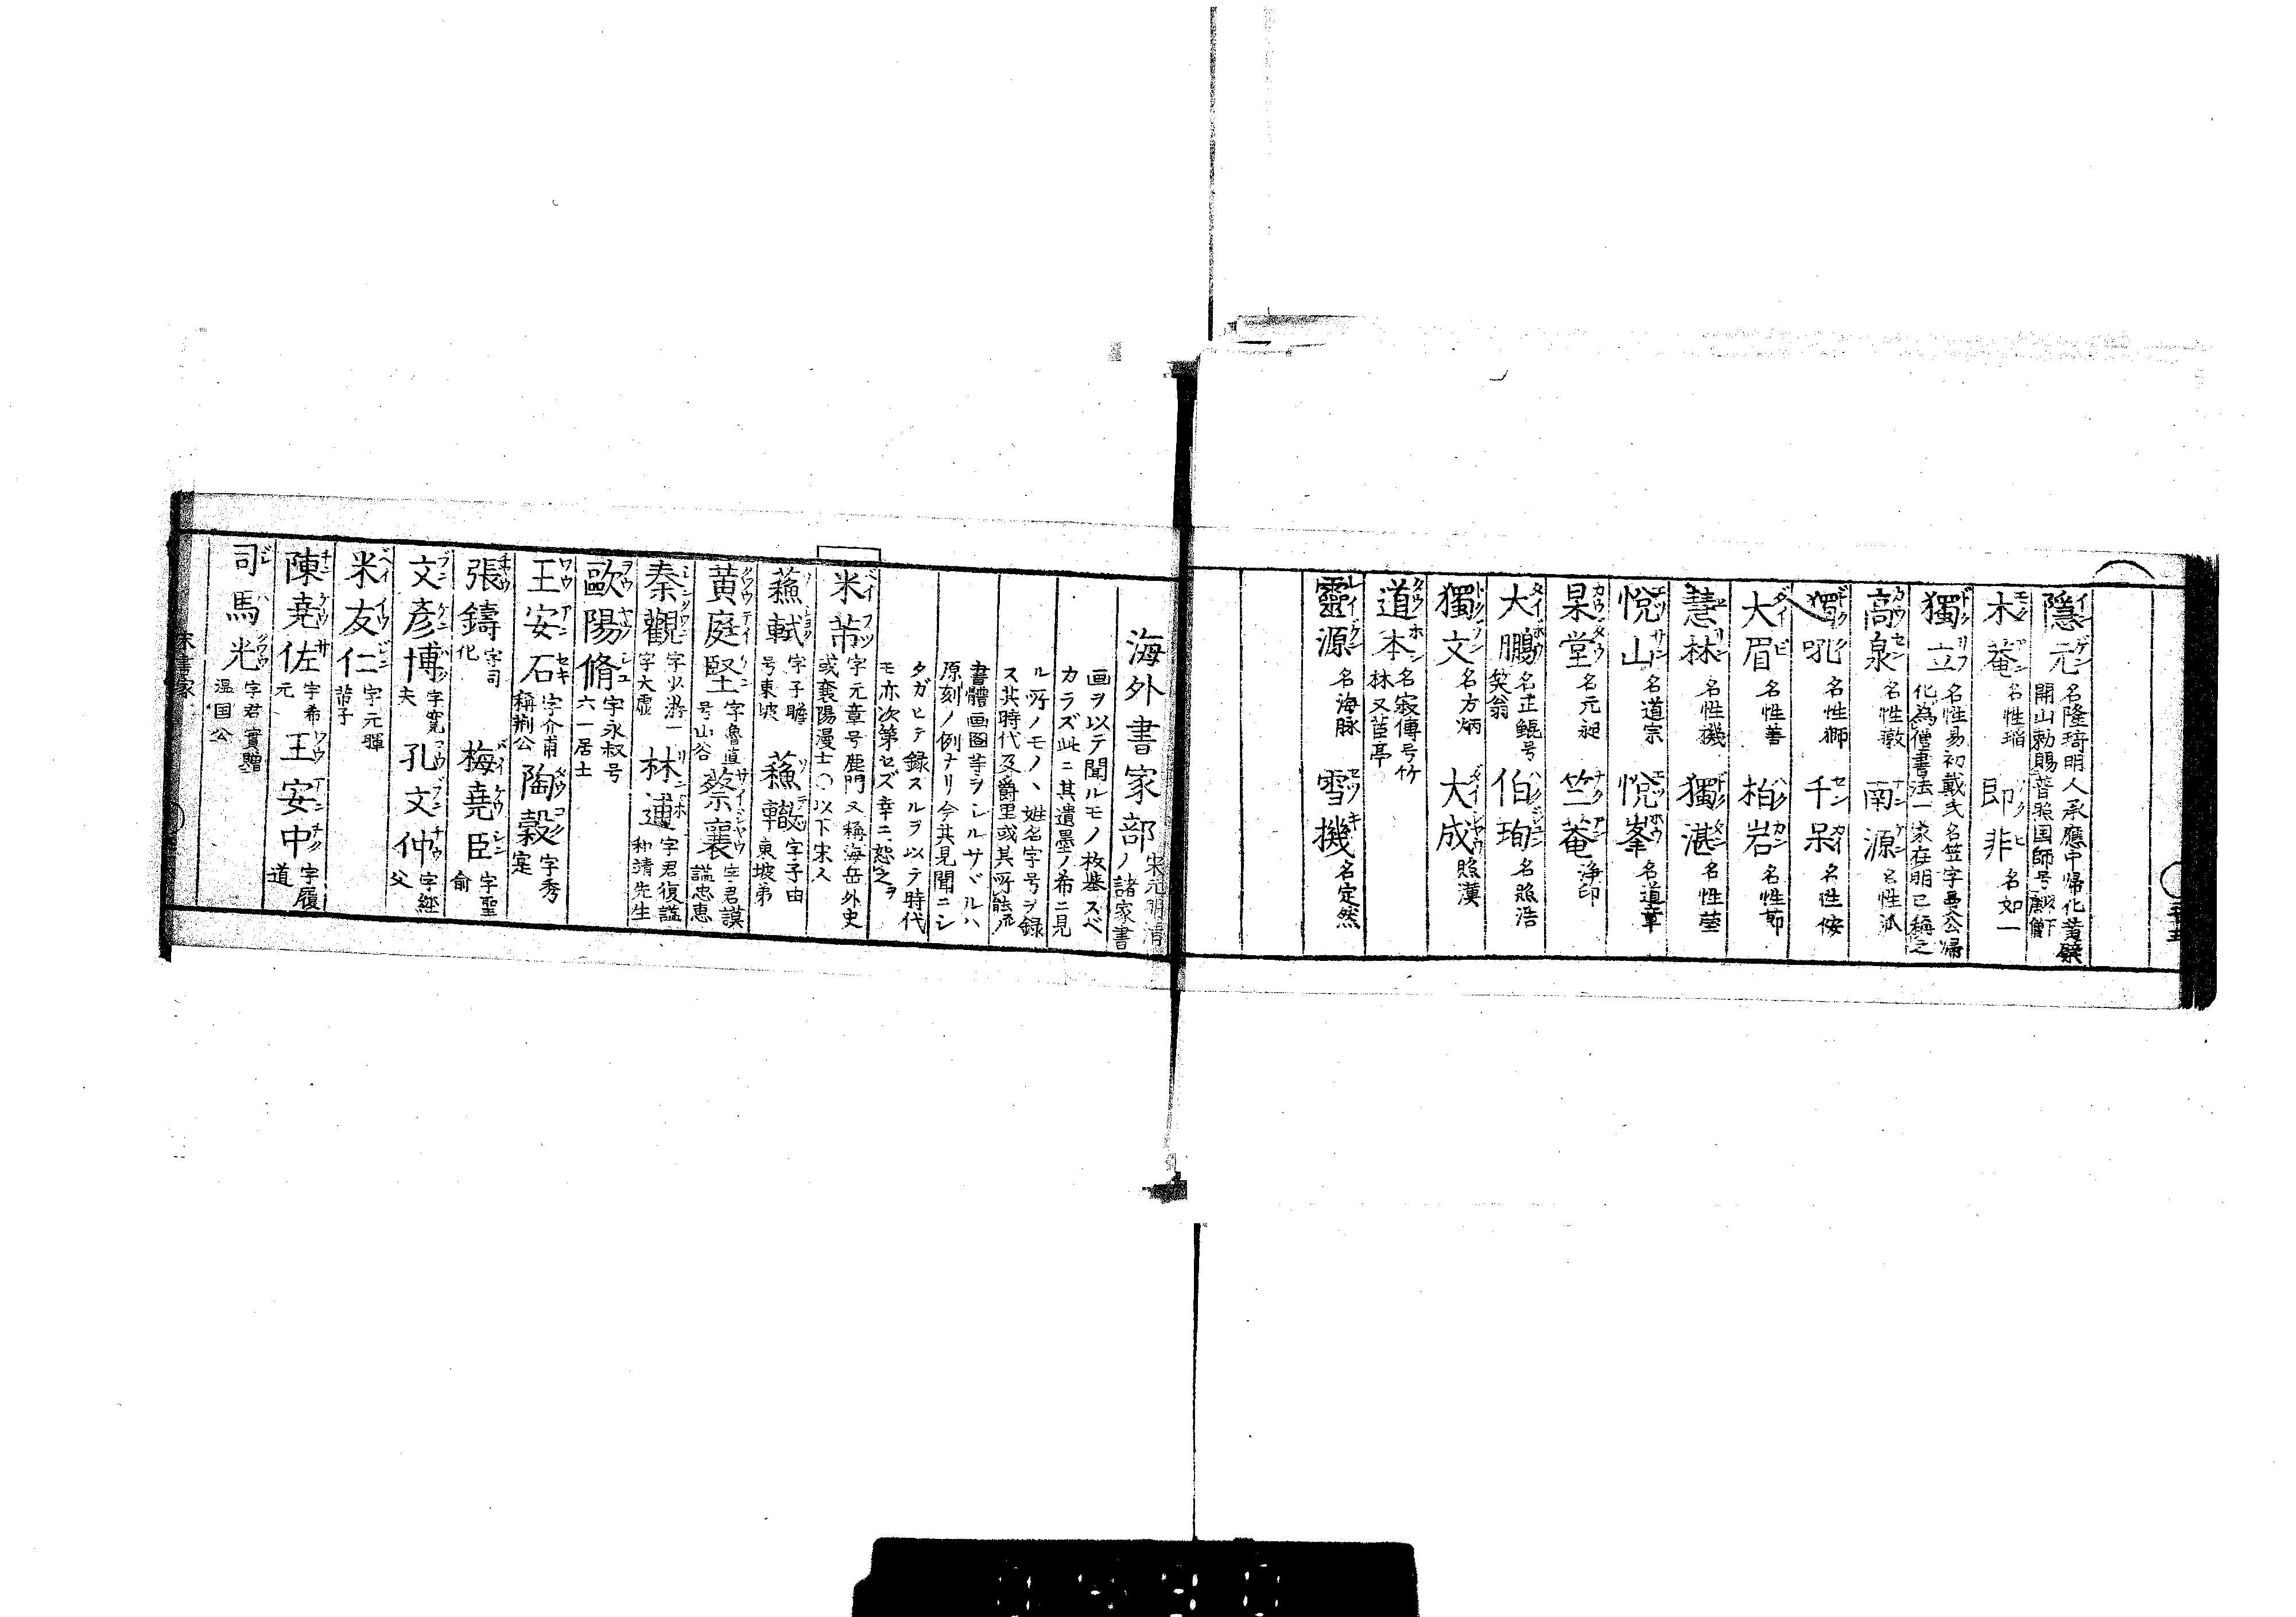 隱元 名隆琦明人承應中帰化黄檗開山勅賜普照国師号
木菴 名性瑫 即非 名如一
獨立 名性易初戴氏名笠字曼公帰化為僧書法一家在明已稱之
高泉 名性激 南源 名性派
獨吼 名性獅 千呆 名性侒
大眉 名性善 柏岩 名性節
慧林 名性機 獨湛 名性瑩
悦山 名道宗 悦峯 名道章
杲堂 名元昶 竺菴 浄印
大鵬 名正鯤号笑翁 伯珣 名照浩
獨文 名方炳 大成 照漢
道本 名寂傳号竹林又苕亭
靈源 名海脉 雪機 名定然
海外書家部 宋元明清ノ諸家書
画ヲ以テ聞ルモノ枚挙スベ
カラズ此ニ其遺墨ノ希ニ見
ル所ノモノヽ姓名字号ヲ録
ス其時代及爵里或其所能ノ
書體画圖等ヲシルサヾルハ
原刻ノ例ナリ今其見聞ニシ
タガヒテ録スルヲ以テ時代
モ亦次第セズ幸ニ恕之ヲ
米芾 字元章号鹿門又稱海岳外史或襄陽漫士〇以下宋人
蘓軾 字子瞻号東坡 蘓轍 字子由東坡弟
黄庭堅 字魯直号山谷 蔡襄 字君謨諡忠惠
秦觀 字少游一字大虚 林逋 字君復諡和靖先生
歐陽脩 字永叔号六一居士
王安石 字介甫稱荆公 陶穀 字秀寔
張鑄 字司化 梅堯臣 字聖俞
文彦博 字寛夫 孔文仲 字經父
米友仁 字元暉芾子
陳堯佐 字希元 王安中 字履道
司馬光 字君實贈温国公
宋書家